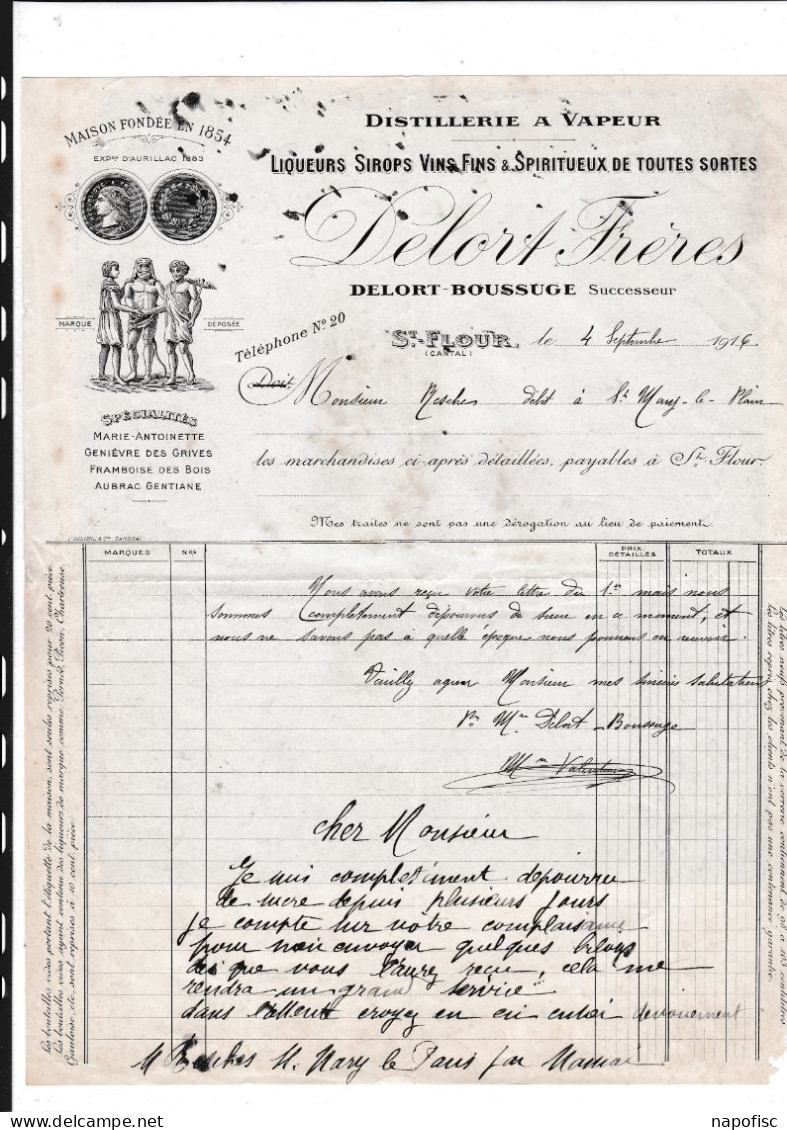 MAISON FONDÉE EN 1854
EXPON D'AURILLAC 1883
MARQUE DÉPOSÉE
SPÉCIALITÉS
MARIE-ANTOINETTE
GENIÈVRE DES GRIVES
FRAMBOISE DES BOIS
AUBRAC GENTIANE
DISTILLERIE A VAPEUR
LIQUEURS SIROPS VINS FINS & SPIRITUEUX DE TOUTES SORTES
Delort Frères
DELORT-BOUSSUGE Successeur
Téléphone No 20
ST-FLOUR, le 4 Septembre 1916
(CANTAL)
Doit Monsieur débt à St Mary-le-Plain
les marchandises ci-après détaillées, payables à St-Flour.
Mes traites ne sont pas une dérogation au lieu de paiement.
MARQUES NOS PRIX DÉTAILLÉS TOTAUX
Nous avons reçu votre lettre du 1er mais nous
sommes complètement dépourvus de sucre en ce moment, et
nous ne savons pas à quelle époque nous pourrons en recevoir.
Veuillez agréer Monsieur mes sincères salutations
Pr Mme Delort-Boussuge
cher Monsieur
Je suis completiment depourru
de sucre depuis plusieurs jours
je compte sur votre complaisance
pour m'en envoyer quelques
des que vous l'aurez reçu, cela me
rendra un grand service
dans l'attente croyez en devouement
Les bouteilles vides portant l'étiquette de la maison, sont seules reprises pour 20 cent. pièce
Les bouteilles vides ayant contenu des liqueurs de marque comme Pernod, Picon, Chartreuse,
etc. sont reprises à 10 cent. pièce.
Les litres neufs provenant de la verrerie contiennent de 98 à 103 centilitres
Les litres repris chez les clients n'ont pas une contenance garantie.
napofisc